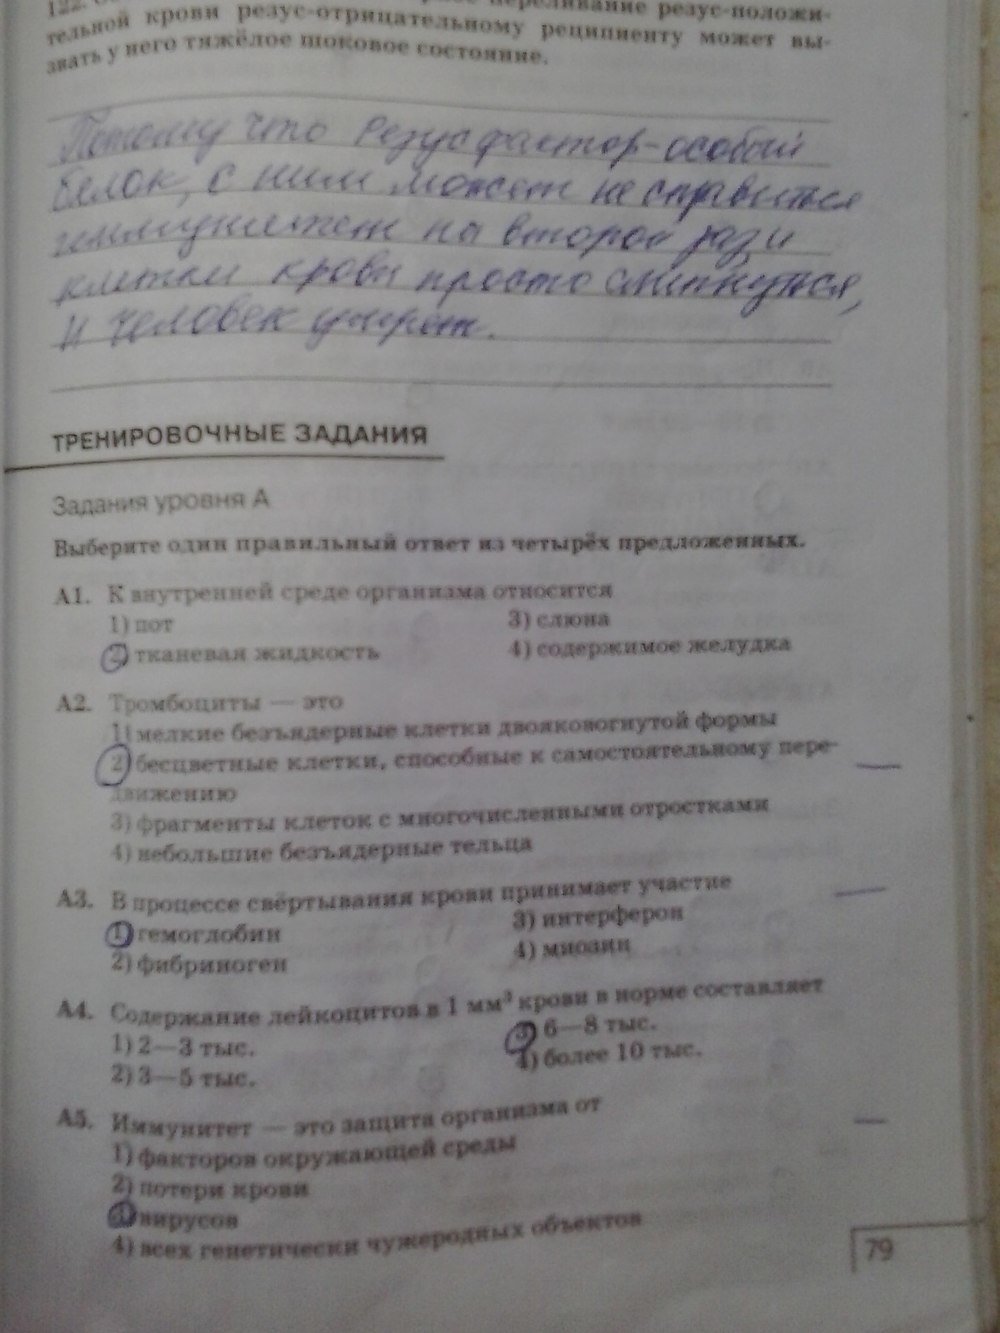 122. переливание резус-положи-
тельной крови резус-отрицательному реципиенту может вы-
звать у него тяжёлое шоковое состояние.
Потому что Резус фактор-особый
белок, с ним может не справиться
иммунитет на второй раз и
клетки крови просто слипнуться,
и человек умрёт.
ТРЕНИРОВОЧНЫЕ ЗАДАНИЯ
Задания уровня А
Выберите один правильный ответ из четырёх предложенных.
А1. К внутренней среде организма относится
1) пот
2) тканевая жидкость
3) слюна
4) содержимое желудка
А2. Тромбоциты — это
1) мелкие безъядерные клетки двояковогнутой формы
2) бесцветные клетки, способные к самостоятельному пере-
движению
3) фрагменты клеток с многочисленными отростками
4) небольшие безъядерные тельца
А3. В процессе свёртывания крови принимает участие
1) гемоглобин
2) фибриноген
3) интерферон
4) миозин
А4. Содержание лейкоцитов в 1 мм³ крови в норме составляет
1) 2—3 тыс.
2) 3—5 тыс.
3) 6—8 тыс.
4) более 10 тыс.
А5. Иммунитет — это защита организма от
1) факторов окружающей среды
2) потери крови
3) вирусов
4) всех генетически чужеродных объектов
79